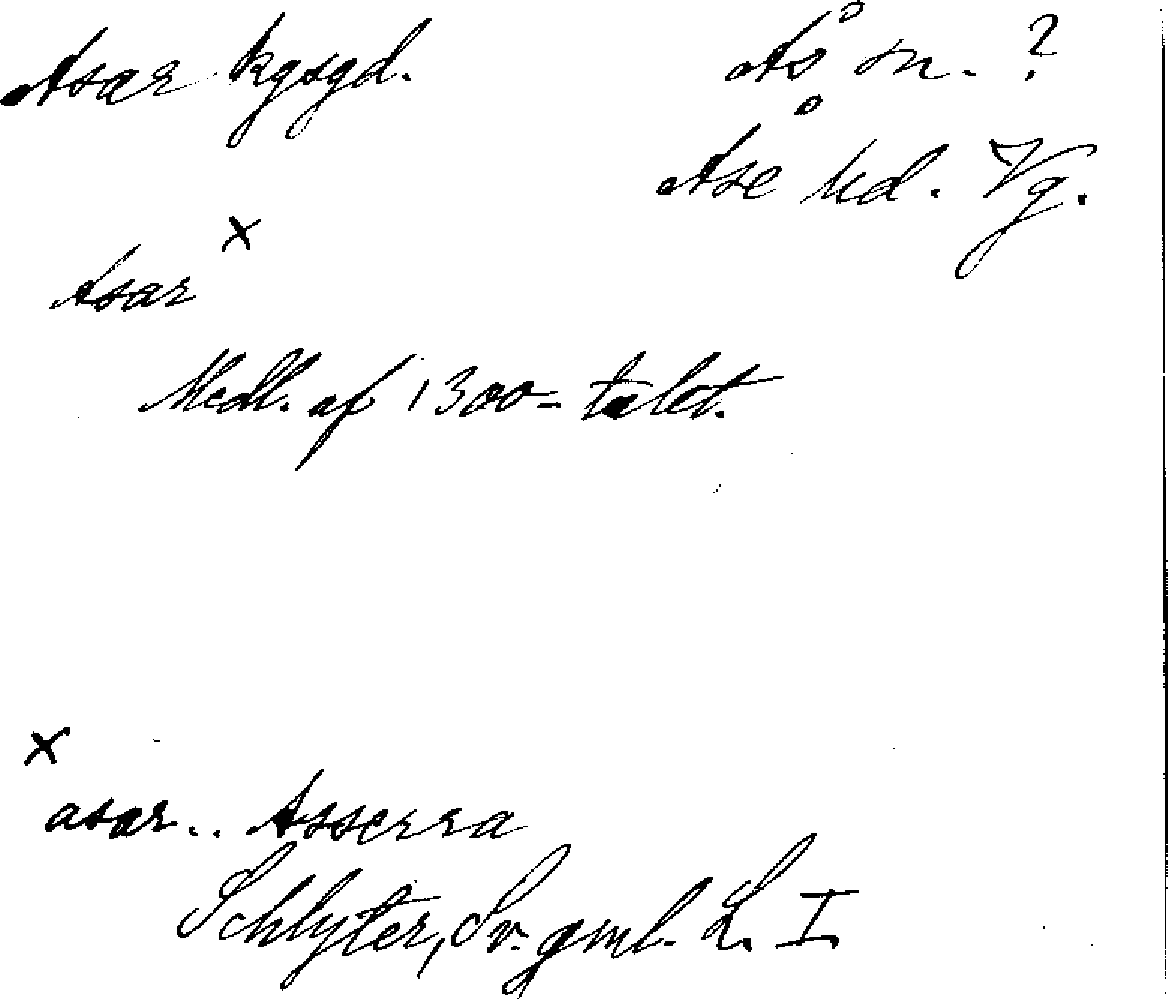 Asar kgsgd. Ås sn. ?
Åse hd. Vg.
Asar x
Medl. af 1300-talet.
x
asar.. Asserra
Schlyter, Sv. gml. L. I